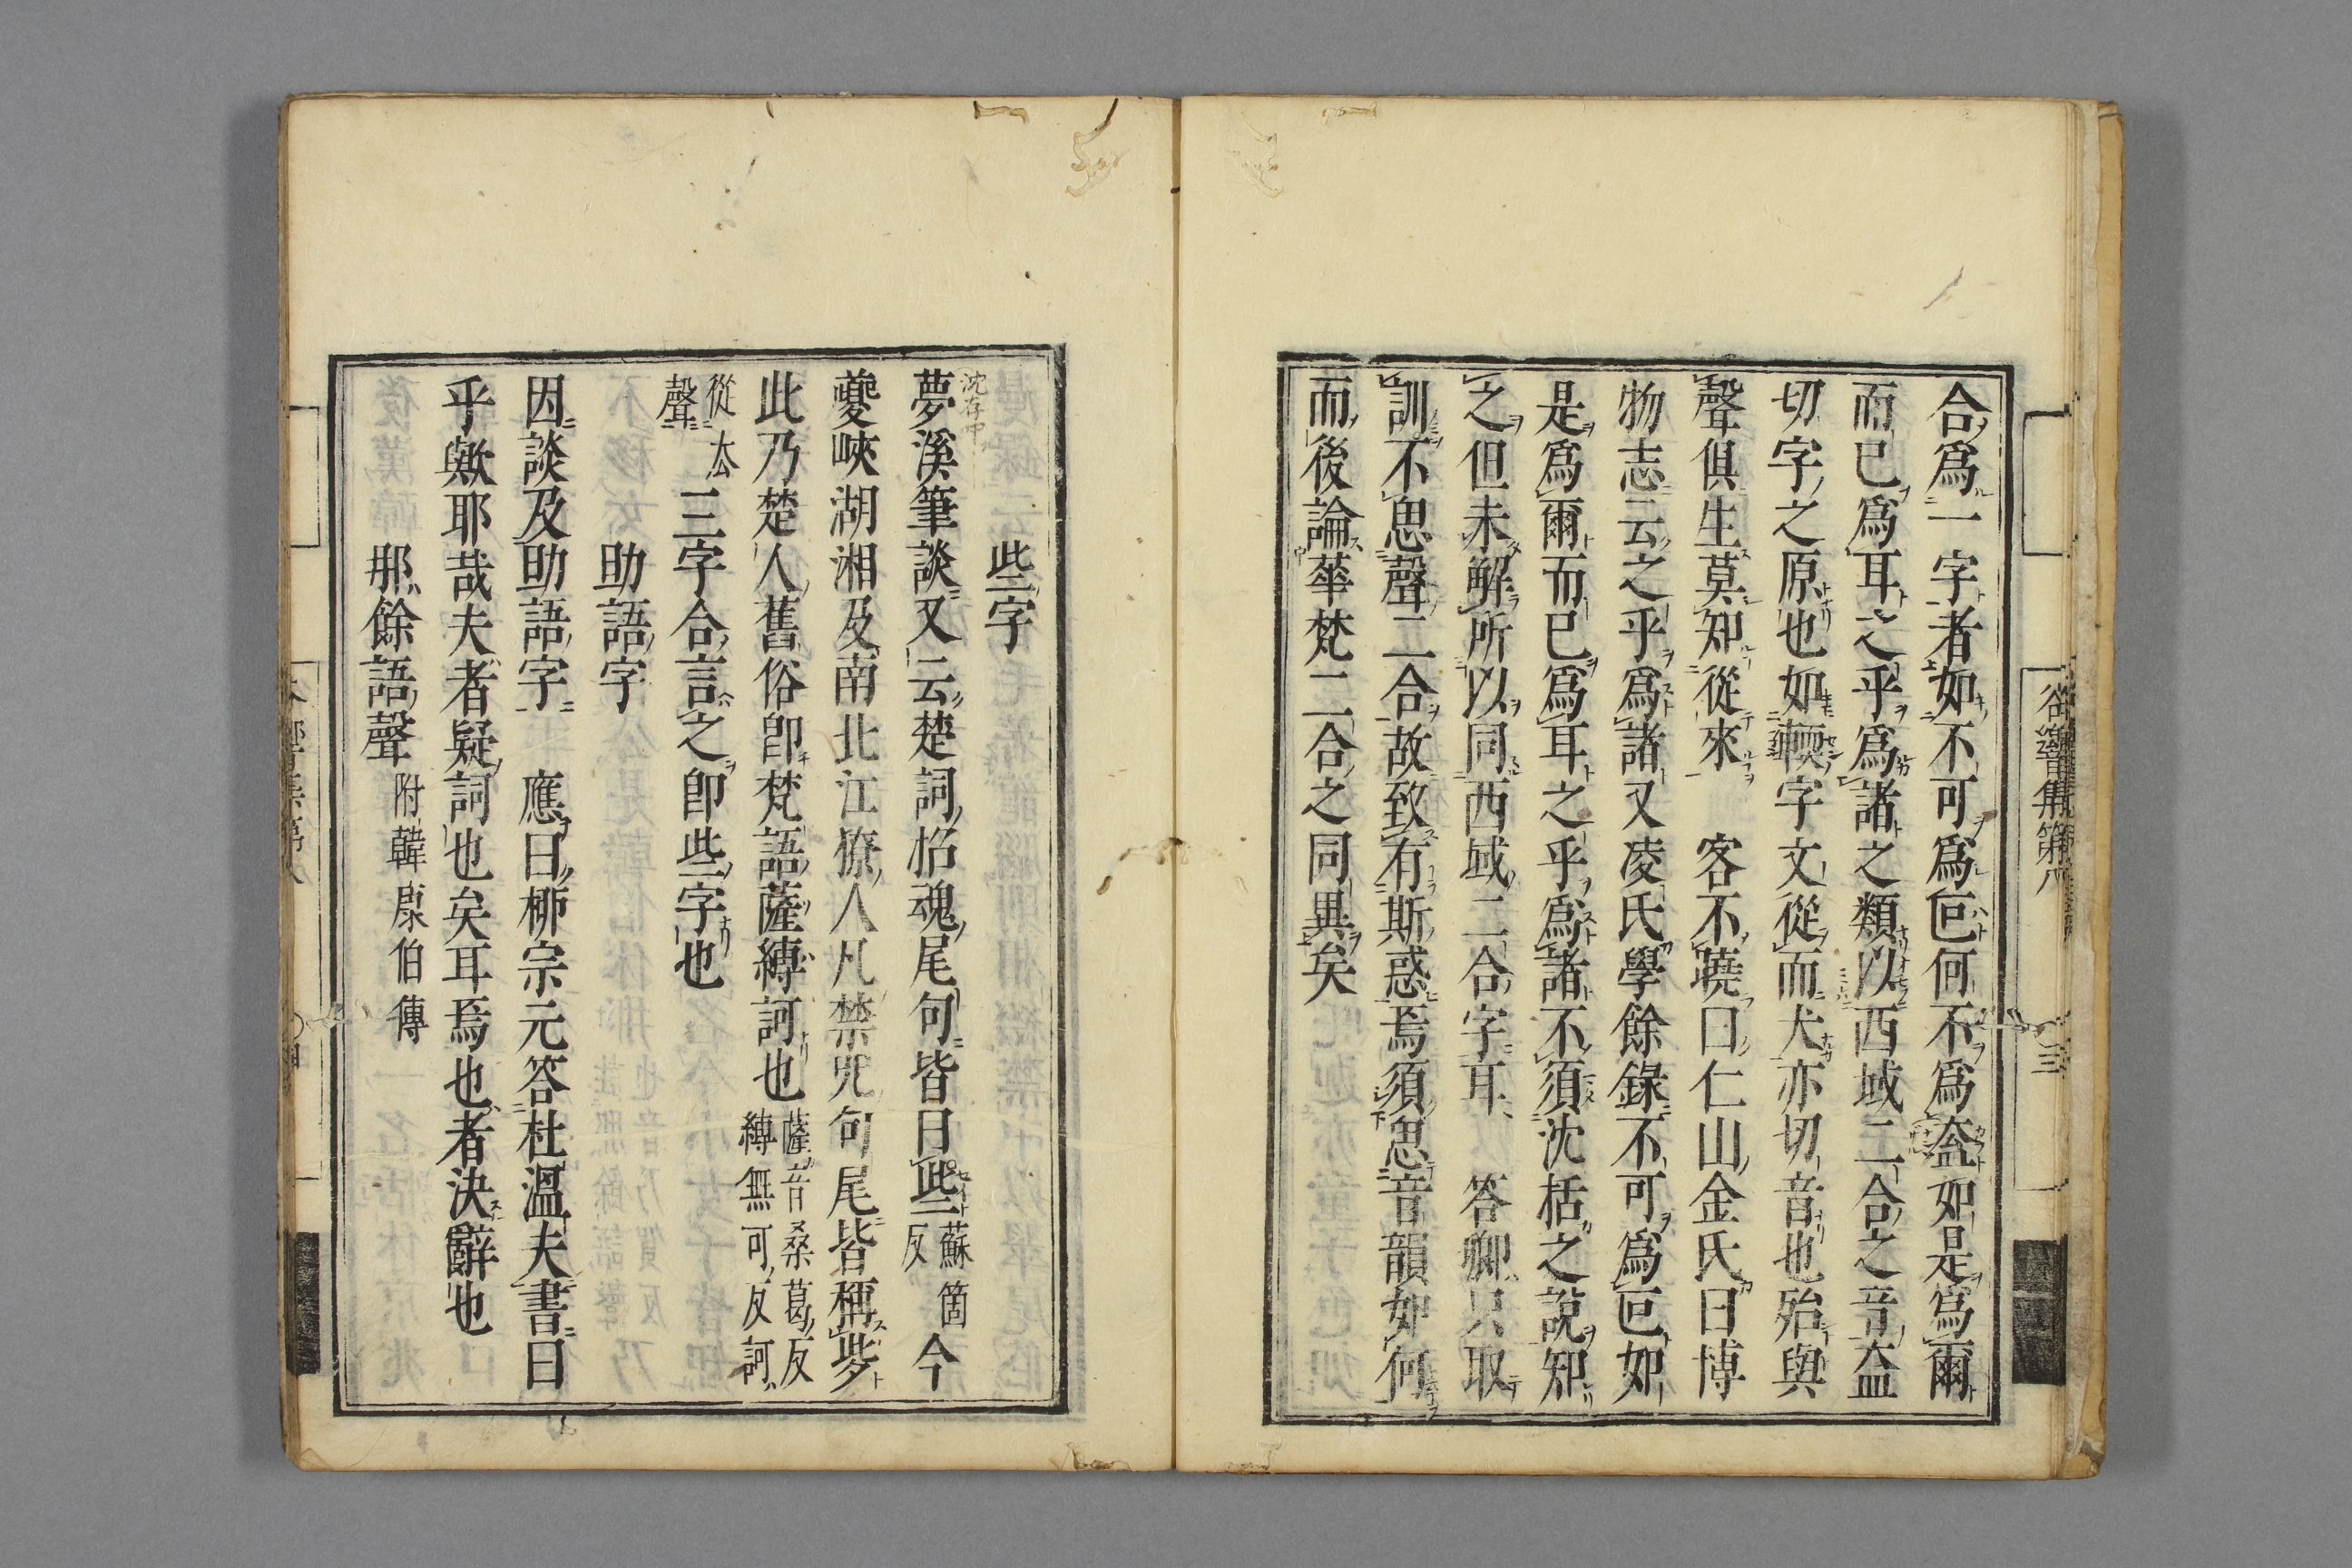 合爲一字者如不可爲叵何不爲盍如是爲爾
而已爲耳之乎爲諸之類以西域二合之音盖
切字之原也如輭字文從而犬亦切音也殆與
聲俱生莫知從來　客不蹺曰仁山金氏曰博
物志云之乎爲諸又凌氏學餘錄不可爲叵如
是爲爾而已爲耳之乎爲諸不須沈括之說知
之但未解所以同西域二合字耳　答卿只取
訓不思聲二合故致有斯惑焉須思音韻如何
而後論華梵二合之同異矣
些字
沈存中
夢溪筆談又云楚詞招魂尾句皆曰些蘇箇反今
夔峽湖湘及南北江獠人凡禁呪句尾皆稱些
此乃楚人舊俗卽梵語薩縛訶也薩音桑葛反縛無可反訶
從去聲三字合言之卽些字也
助語字
因談及助語字　應曰柳宗元答杜溫夫書曰
乎歟耶哉夫者疑詞也矣耳焉也者決辭也
那餘語聲附韓康伯傳